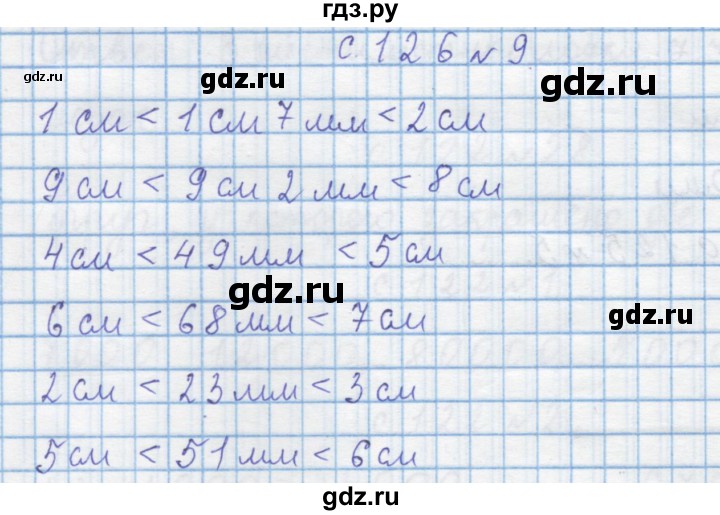 гдз.ру
с. 126 № 9
gdz.ru gdz.ru gdz.ru
1 см < 1 см 7 мм < 2 см
9 см < 9 см 2 мм < 8 см
4 см < 49 мм < 5 см
gdz.ru gdz.ru
6 см < 68 мм < 7 см
2 см < 23 мм < 3 см
gdz.ru gdz.ru
5 см < 51 мм < 6 см
gdz.ru